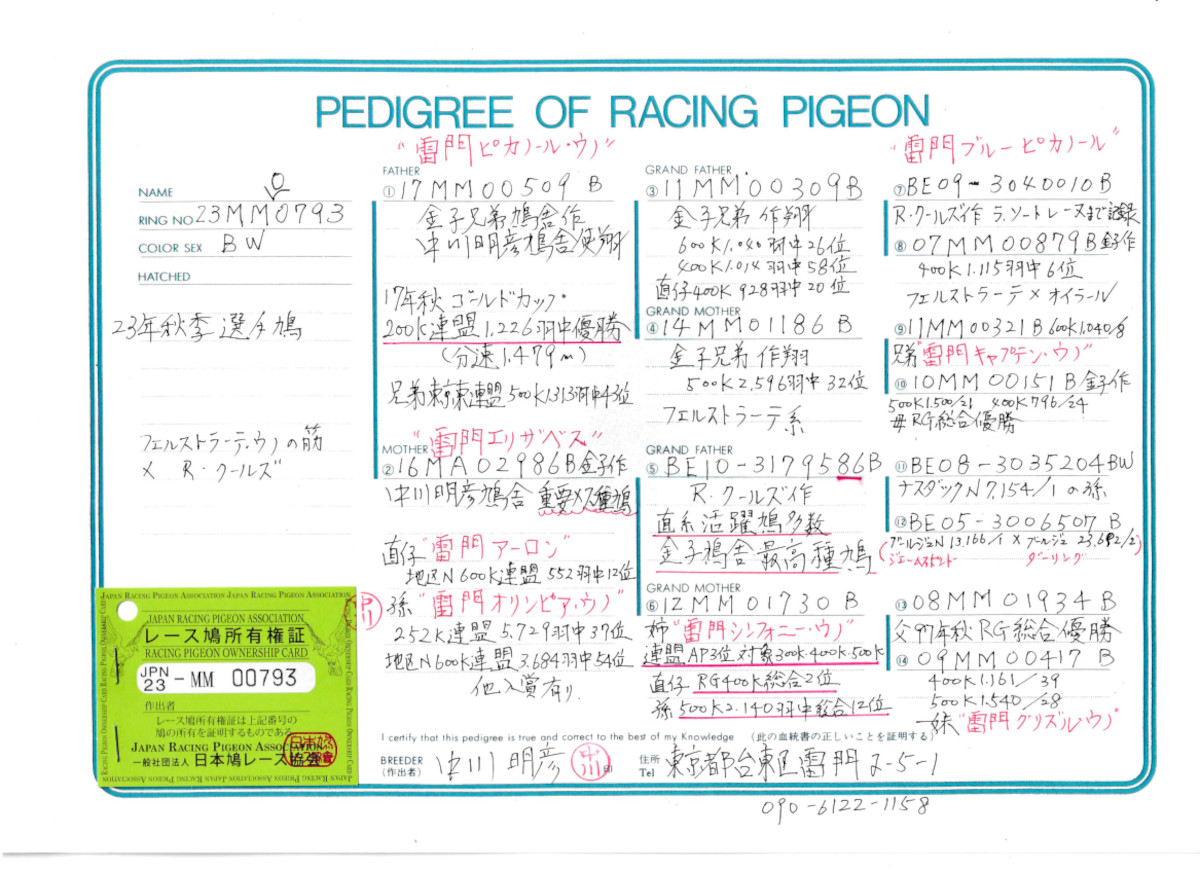 PEDIGREE OF RACING PIGEON
NAME
RING NO 23MM00793
COLOR SEX BW
HATCHED
23年秋季選手鳩
フェルストラーテ・ウノの筋
× R・クールズ
"雷門ピカノール・ウノ"
FATHER
① 17MM00509 B
金子兄弟鳩舎作
中川明彦鳩舎使翔
17年秋ゴールドカップ
200K連盟1,226羽中優勝
(分速1,479m)
兄弟東京東連盟500K1313羽中43位
"雷門エリザベス"
MOTHER
② 16MA02986B金子作
中川明彦鳩舎 重要メス種鳩
直仔"雷門アーロン"
地区N600K連盟552羽中12位
孫"雷門オリンピア・ウノ"
252K連盟5.729羽中37位
地区N600K連盟3.684羽中54位
他入賞有り
GRAND FATHER
③ 11MM00309B
金子兄弟作翔
600K1.040羽中26位
400K1.014羽中58位
直仔400K928羽中20位
GRAND MOTHER
④ 14MM01186 B
金子兄弟作翔
500K2.596羽中32位
フェルストラーテ系
GRAND FATHER
⑤ BE10-3179586B
R・クールズ作
直系活躍鳩多数
金子鳩舎最高種鳩
GRAND MOTHER
⑥ 12MM01730 B
姉"雷門シンフォニー・ウノ"
連盟AP3位対象300K.400K.500K
直仔 RG400K総合2位
孫 500K2.140羽中総合12位
"雷門ブルーピカノール"
⑦ BE09-3040010B
R・クールズ作 ラ、ソートレーヌまで記録
⑧ 07MM00879B金子作
400K1.115羽中6位
フェルストラーテ×オイラール
⑨ 11MM00321B 600K1,040/8
兄弟"雷門キャプテン・ウノ"
⑩ 10MM00151B金子作
500K1.500/21 400K796/24
母RG総合優勝
⑪ BE08-3035204BW
ナスダックN7.154/1の孫
⑫ BE05-3006507 B
ブールジュN13.166/1×ブールジュ23.692/2
ダーリング
⑬ 08MM01934 B
父97年秋RG総合優勝
⑭ 09MM00417 B
400K1.161/39
500K1.540/28
妹"雷門グリズル・ウノ"
I certify that this pedigree is true and correct to the best of my Knowledge (此の血統書の正しいことを証明する)
BREEDER
(作出者)
中川明彦
中川
印
住所
Tel
東京都台東区雷門2-5-1
090-6122-1158
JAPAN RACING PIGEON ASSOCIATION JAPAN RACING PIGEON ASSOCIATION
JAPAN RACING PIGEON ASSOCIATION
レース鳩所有権証
RACING PIGEON OWNERSHIP CARD
JPN
23 -MM 00793
作出者
レース鳩所有権証は上記番号の
鳩の所有を証明するものである
JAPAN RACING PIGEON ASSOCIATION
一般社団法人 日本鳩レース協会
中川